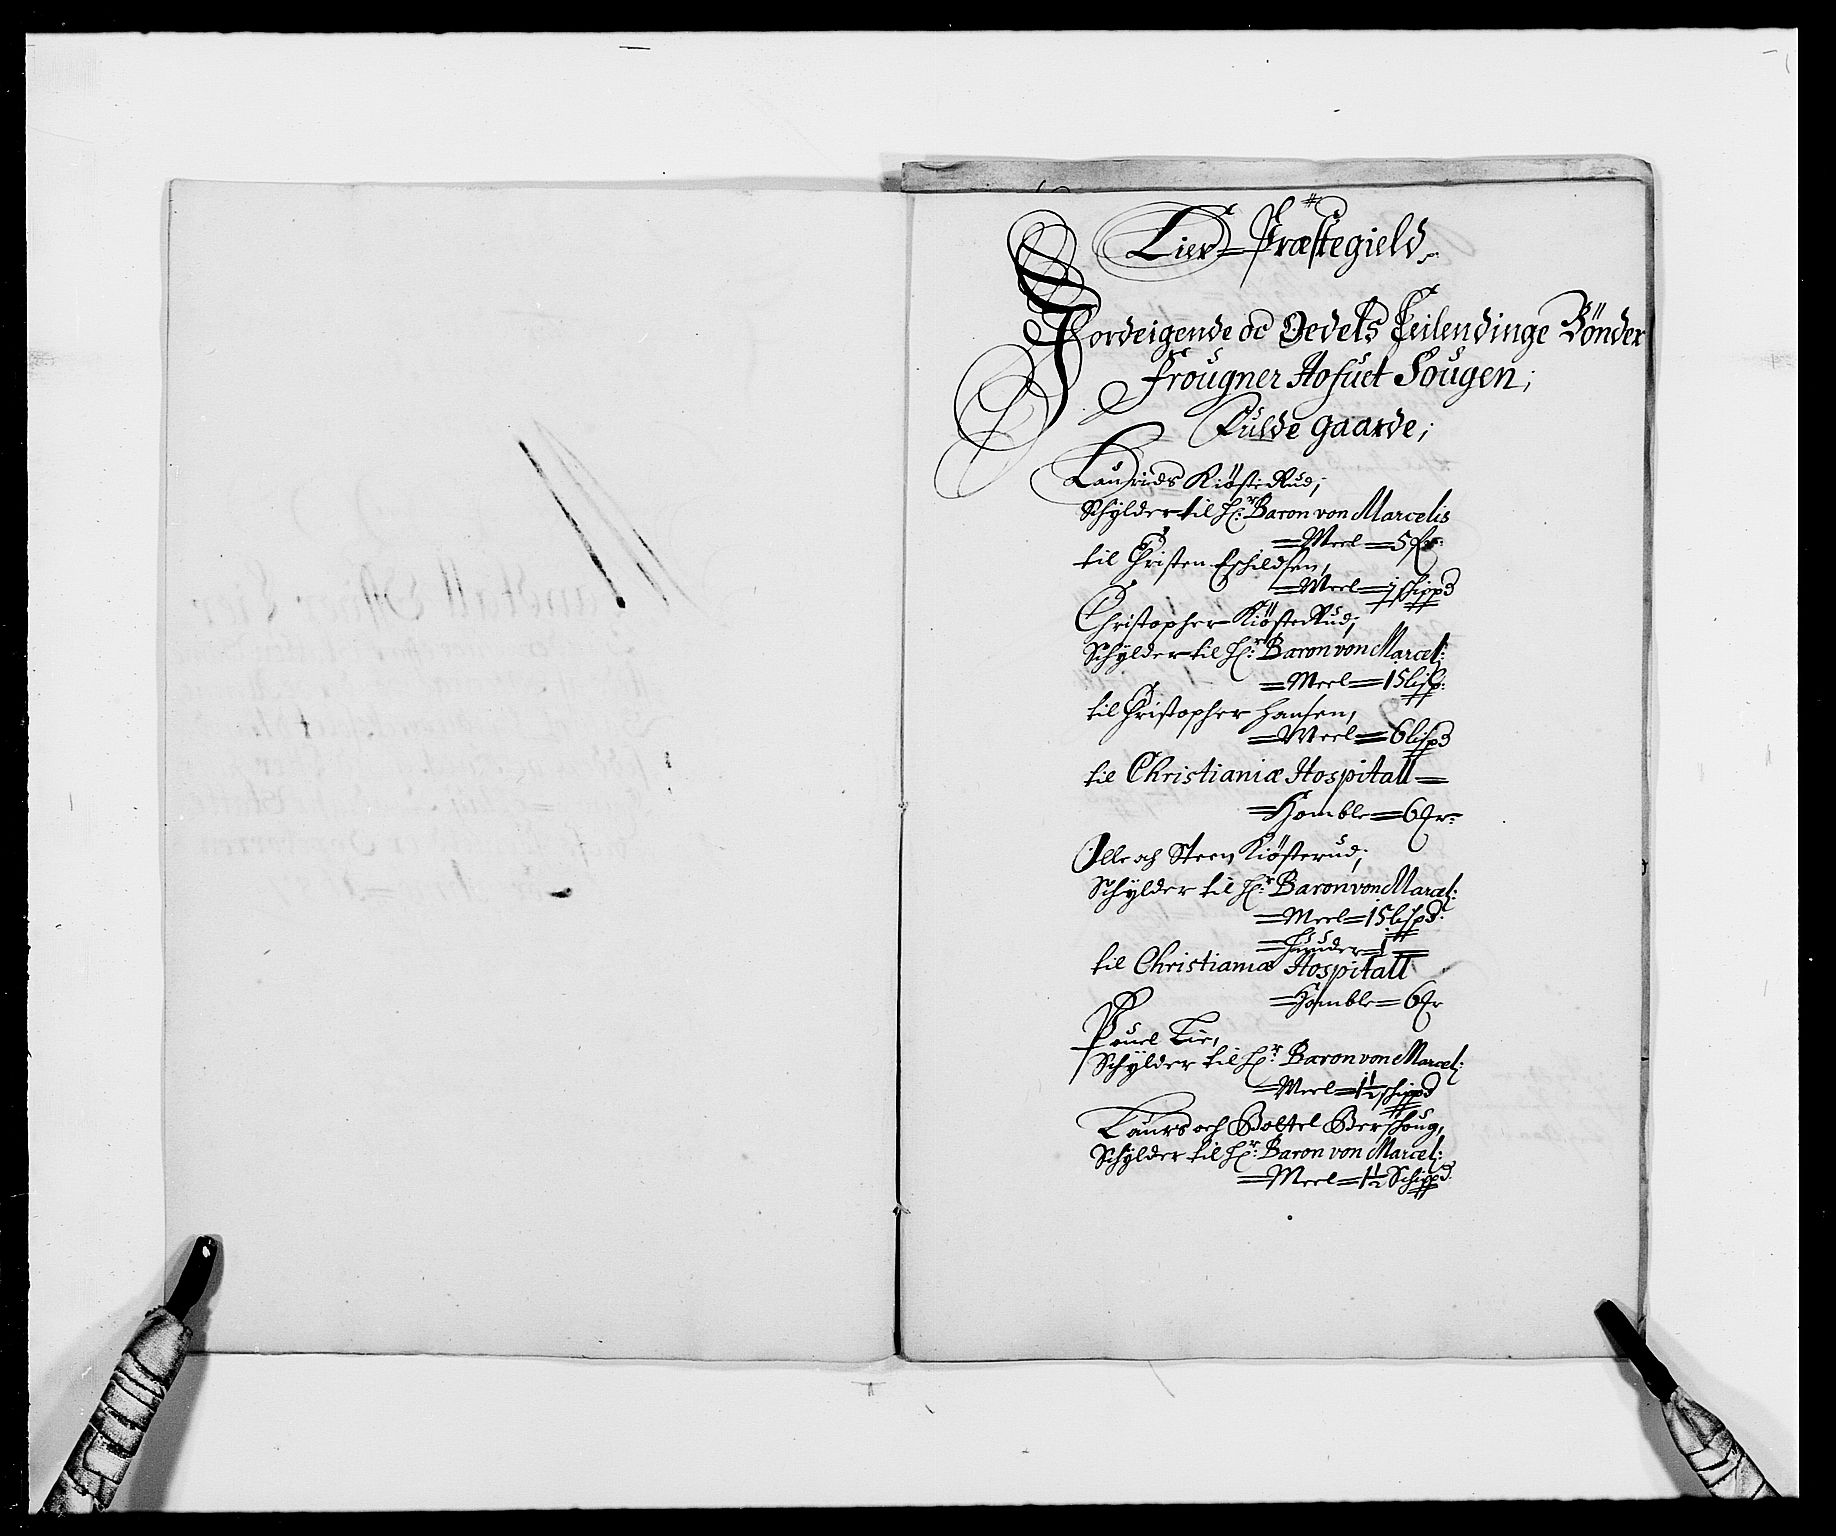 Lier Præstegield,
Jordeigende oc Oedels Teilendinge Bönder
Frougner Hofuet Sougen;
Fulde gaarde;
Lauridts Kiösterud;
Schÿlder til Hr: Baron von Marcelis
Meel 5 fr:
til Christen Eschildsen,
Meel 1 schippd
Christopher Kiösterud;
Schÿlder til Hr: Baron von Marcel:
Meel 15 lispd:
til Christopher Hansen,
Meel 6 lispd
til Christianiæ Hospitall
Homble 6 fr:
Olle och Steen Kiösterud;
Schÿlder til Hr: Baron von Marcel:
Meel 15 lispd:
Huuder 1
til Christianiæ Hospitall
Homble 6 fr
Pouel Lie,
Schÿlder til Hr: Baron von Marcel:
Meel 1½ schippd
Laurs och Boltel Berschoug,
Schÿlder til Hr: Baron von Marcel:
Meel 1½ Schippd: